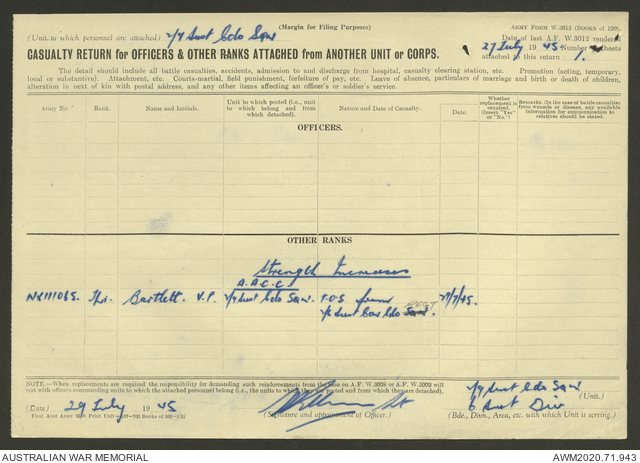 (Margin for Filing Purposes)
ARMY FORM W.3012 (BOOKS of 100).
(Unit to which personnel are attached) 2/9 Aust Cdo Sqn
Date of last A.F. W.3012 rendered
27 July 1945 Number sheets
attached this return 1.
CASUALTY RETURN for OFFICERS & OTHER RANKS ATTACHED from ANOTHER UNIT or CORPS.
The detail should include all battle casualties, accidents, admission to and discharge from hospital, casualty clearing station, etc. Promotion (acting, temporary,
local or substantive). Attachment, etc. Courts-martial, field punishment, forfeiture of pay, etc. Leave of absence, particulars of marriage and birth or death of children,
alteration in next of kin with postal address, and any other items affecting an officer's or soldier's service.
Army No. Rank. Name and Initials. Unit to which posted (i.e., unit to which belong and from which detached). Nature and Date of Casualty. Date. Whether replacement is required. (Insert "Yes" or "No.") Remarks. (In the case of battle casualties from wounds or disease, any available information for communication to relatives should be stated.)
OFFICERS.
OTHER RANKS
Strength Increases
A.A.C.C.
NX111065. Tpr. Bartlett. V.P. 2/9 Aust Cdo Sqn. T.O.S from 27/7/45.
Aust Cav Cdo REGT
NOTE.—When replacements are required the responsibility for demanding such reinforcements from the Base on A.F. W.3008 or A.F. W.3009 will
rest with officers commanding units to which the attached personnel belong (i.e., the units to which they are posted and from which they are detached).
2/9 Aust Cdo Sqn (Unit.)
(Date) 29 July 1945
6 Aust Div
(Signature and appointment of Officer.)
(Bde., Divn., Area, etc. with which Unit is serving.)
AUSTRALIAN WAR MEMORIAL
AWM2020.71.943